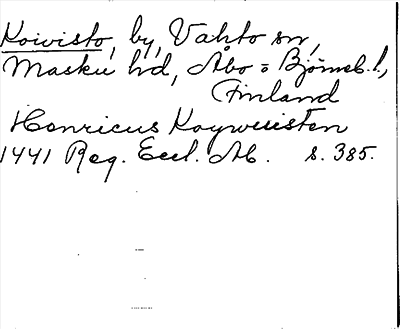 Koivisto, by, Vahto sn,
Masku hd, Åbo o Björneb. l.,
Finland
Henricus Koywisten
1441 Reg. Eccl. Ab. s. 385.